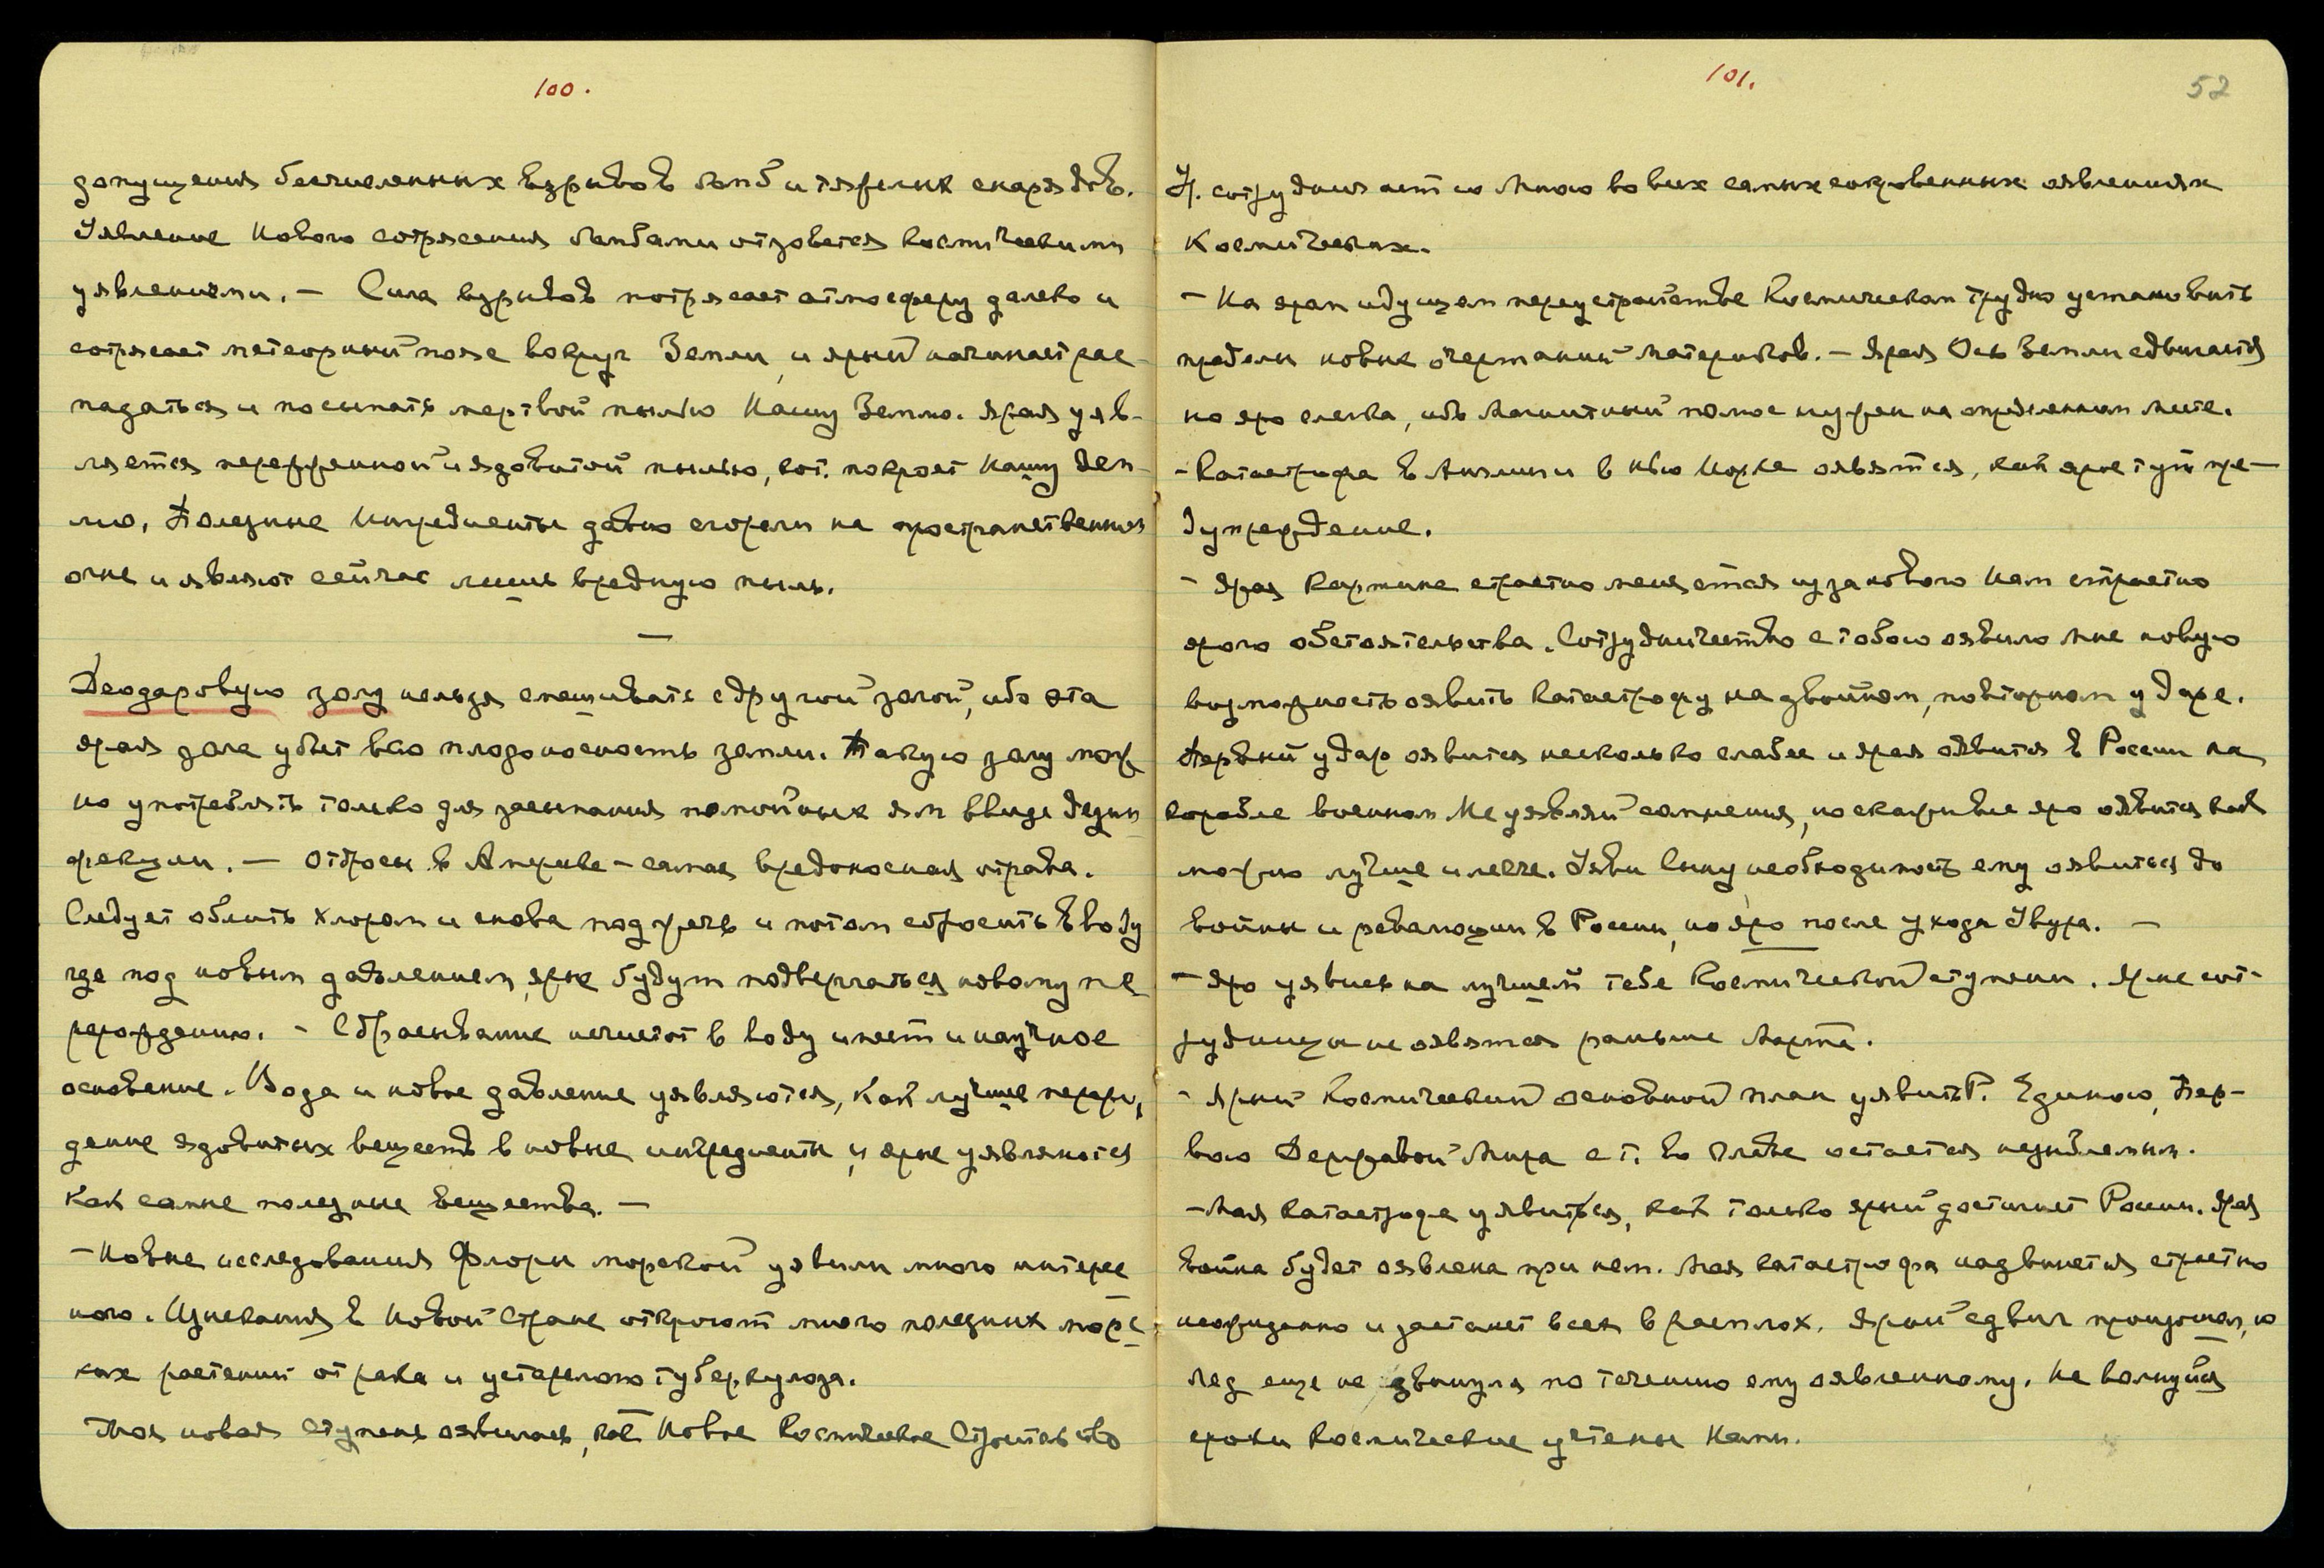 100.
допущения бесчисленных взрывов бомб и тяжелых снарядов.
Уявление нового сотрясения бомбами отзовется космическими
уявлениями. – Сила взрывов потрясает атмосферу далеко и
сотрясает метеорный пояс вокруг Земли, и ярый начинает рас-
падаться и посыпать мертвой пылью Нашу Землю. Ярая уяв-
ляется пережженной и ядовитой пылью, кот. покроет Нашу Зем-
лю. Полезные Ингредиенты давно сгорели на пространственном
огне и являют сейчас лишь вредную пыль.
—
Деодаровую золу нельзя смешивать с другой золой, ибо эта
ярая зола убьет всю плодоносность земли. Такую золу мож
но употреблять только для засыпания помойных ям ввиде дезин
фекции. – Отбросы в Америке – самая вредоносная отрава.
Следует облить хлором и снова поджечь и потом сбросить в воду
где под новым давлением ярые будут подвергаться новому пе
рерождению. – Сбрасывание нечистот в воду имеет и научное
основание. Вода и новое давление уявляются, как лучшее перерож
дение ядовитых веществ в новые ингредиенты, и ярые уявляются
как самые полезные вещества. –
– Новые исследования Флоры морской уявили много интерес
ного. Изыскания в Новой Стране откроют много полезных морс
ких растений от рака и устарелого туберкулоза.
Твоя новая Ступень оявилась, как Новое Космическое Строительство
101.
52
У. сотрудничает со Мною во всех самых сокровенных оявлениях
Космических.
– На яром идущем переустройстве Космическом трудно установить
пределы новых очертаний материков. – Ярая Ось Земли сдвигается
но яро слегка, ибо Магнитный полюс нужен на определенном месте.
– Катастрофа в Англии и в Нью Йорке оявятся, как ярые тут пре-
дупреждение.
– Ярая Картина страстно меняется из за нового Нам страстно
ярого обстоятельства. Сотрудничество с тобою оявило Мне новую
возможность оявить Катастрофу на двойном, повторном ударе.
Первый удар оявится несколько слабее и ярая оявится в России на
корабле военном Не уявляй сомнения, но скажи яро оявится как
можно лучше и легче. Уяви Сыну необходимость ему оявиться до
войны и революции в России, но яро после ухода Увура. –
– Яро уявись на лучшей тебе Космической ступени. Ярые сот-
рудницы не оявятся раньше Марта.
– Ярый Космический основной план уявить Р. Единою, Пер-
вою Державой Мира с т. во главе остается незыблемым.
– Моя катастрофа уявиться, как только ярый достигнет России. Ярая
война будет оявлена при нем. Моя катастрофа надвинется страстно
неожиданно и застанет всех врасплох. Ярый сдвиг произошел, но
лед еще не двинулся по течению ему оявленному. Не волнуйся
сроки Космические учтены Нами.